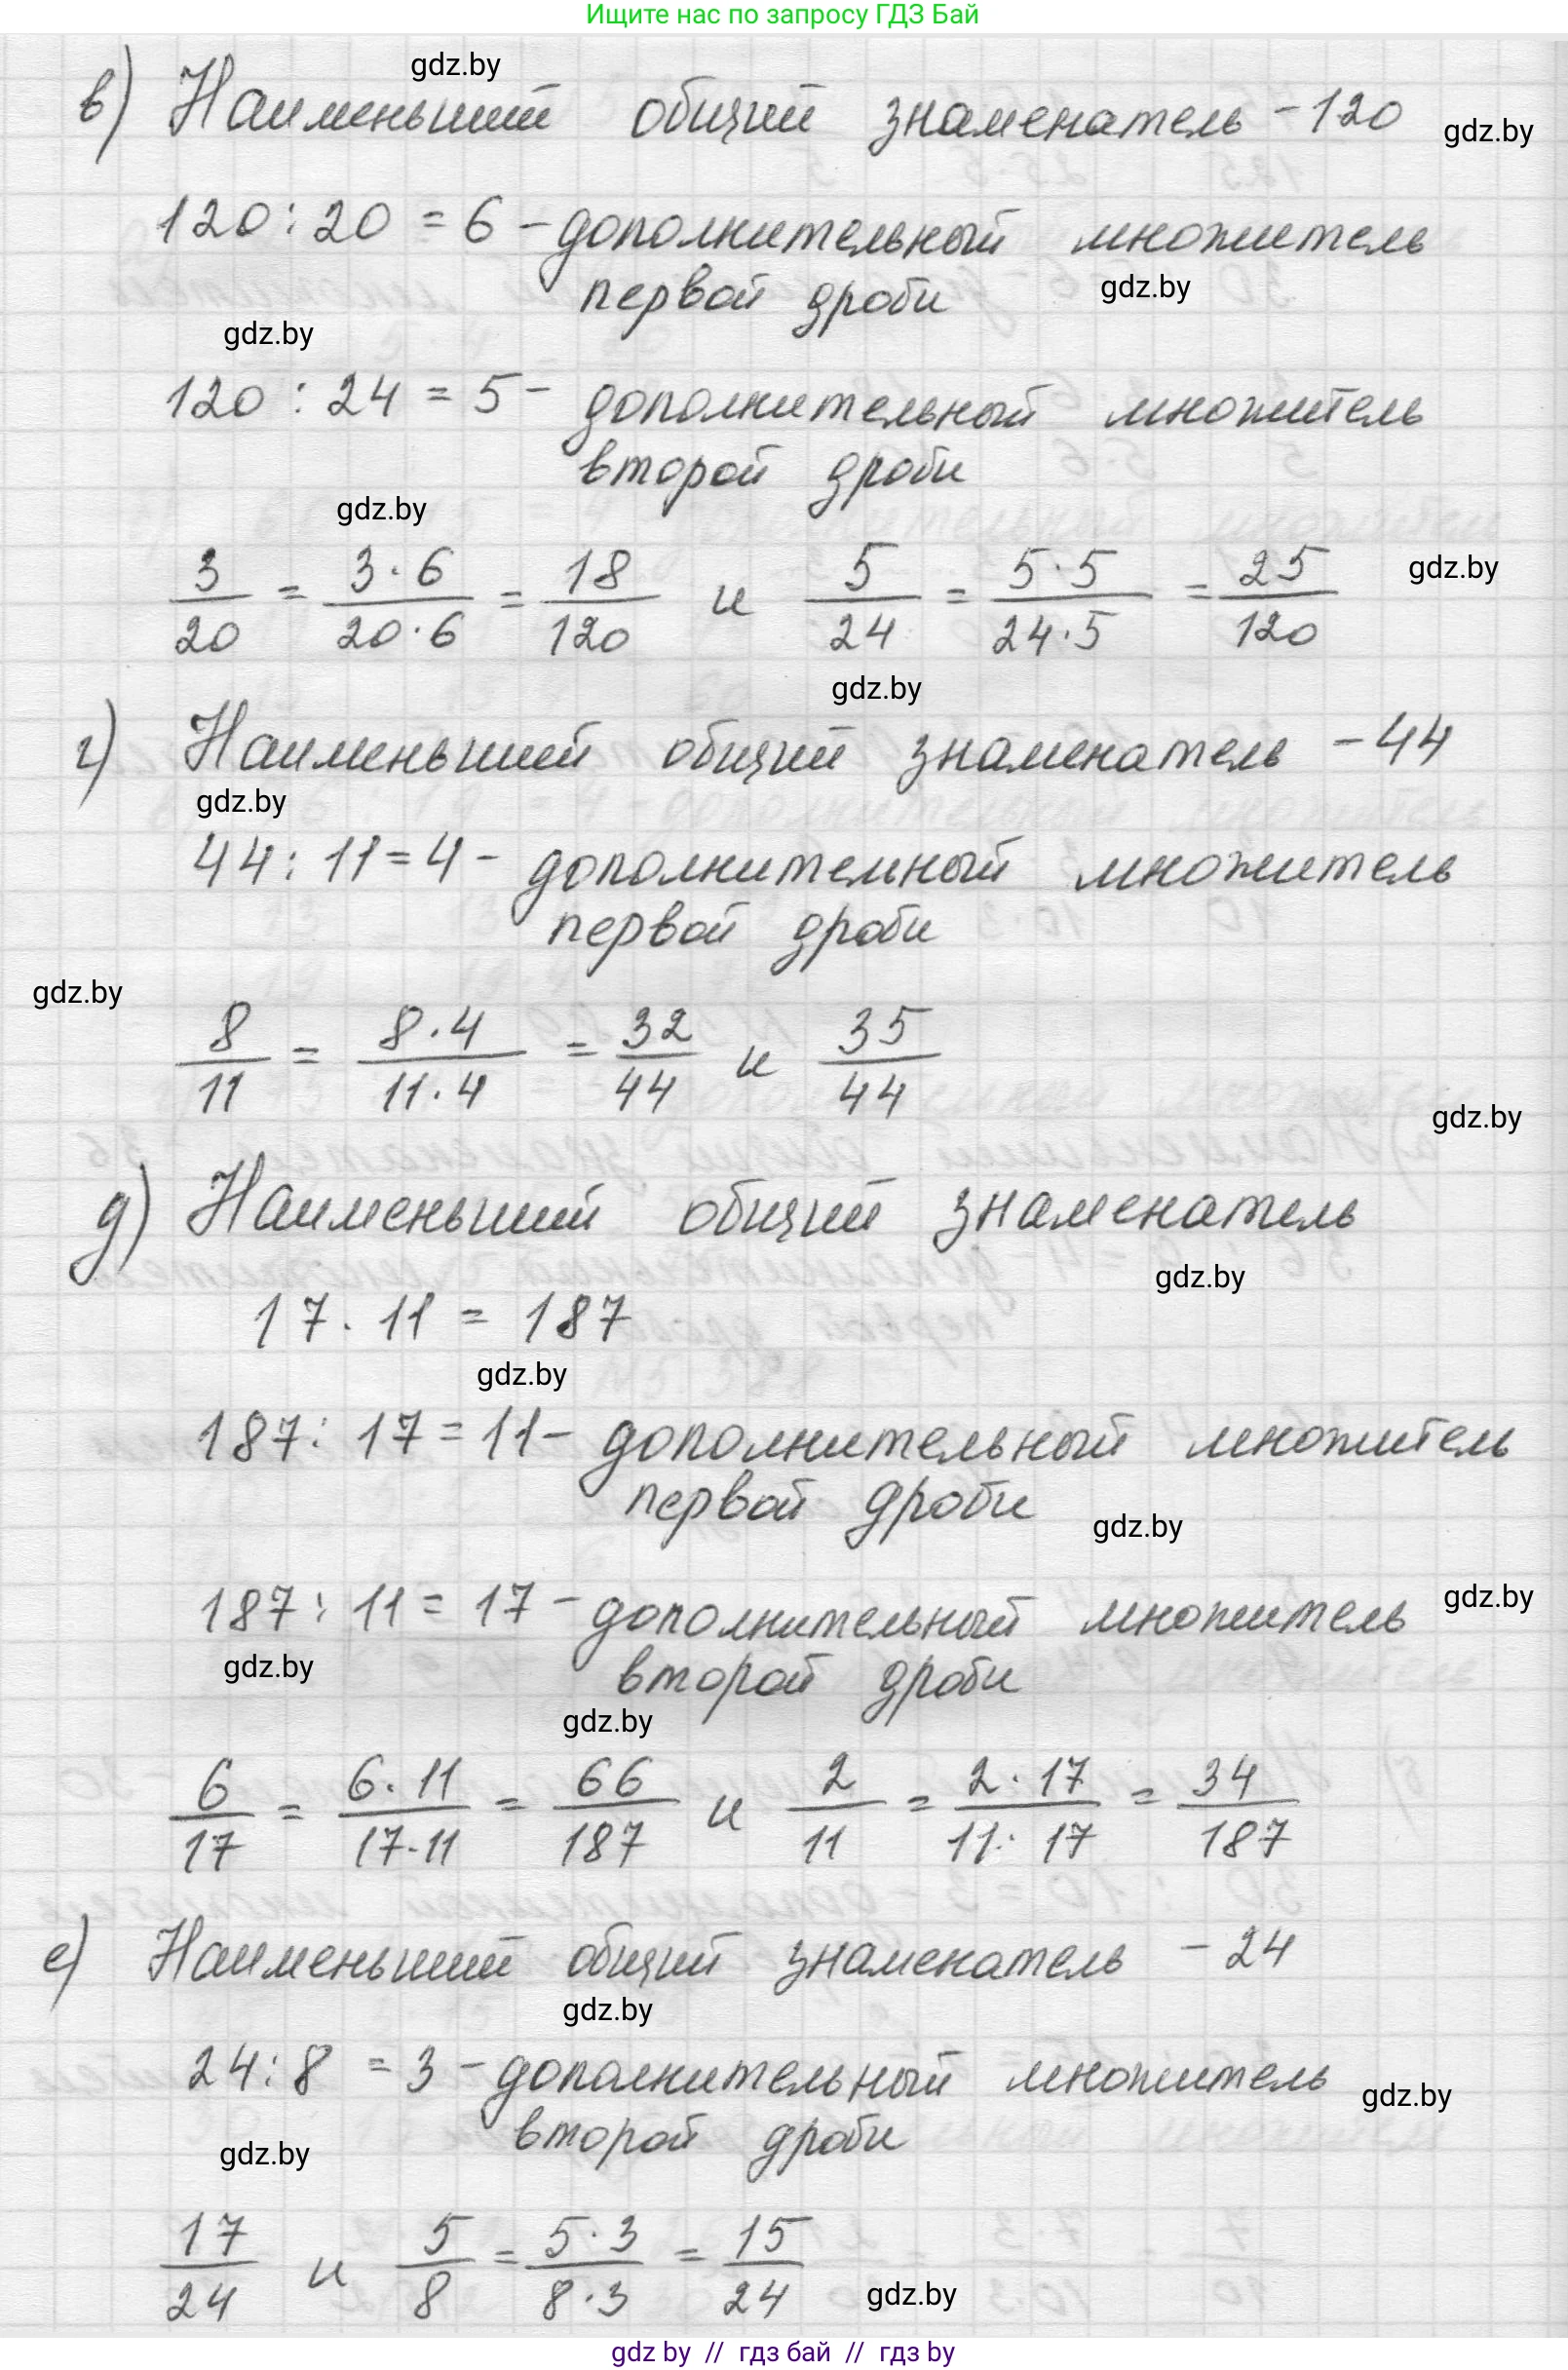 Ищите нас по запросу ГДЗ Бай
gdz.by
в) Наименьший общий знаменатель - 120
gdz.by
120 : 20 = 6 - дополнительный множитель
первой дроби
gdz.by
gdz.by
120 : 24 = 5 - дополнительный множитель
второй дроби
gdz.by
3/20 = 3·6/20·6 = 18/120 и 5/24 = 5·5/24·5 = 25/120
gdz.by
gdz.by
г) Наименьший общий знаменатель - 44
gdz.by
44 : 11 = 4 - дополнительный множитель
первой дроби
gdz.by
8/11 = 8·4/11·4 = 32/44 и 35/44
gdz.by
д) Наименьший общий знаменатель
gdz.by
17 · 11 = 187
gdz.by
187 : 17 = 11 - дополнительный множитель
первой дроби
gdz.by
187 : 11 = 17 - дополнительный множитель
gdz.by
gdz.by
второй дроби
gdz.by
6/17 = 6·11/17·11 = 66/187 и 2/11 = 2·17/11·17 = 34/187
е) Наименьший общий знаменатель - 24
gdz.by
24 : 8 = 3 - дополнительный множитель
gdz.by
второй дроби
gdz.by
17/24 и 5/8 = 5·3/8·3 = 15/24
gdz.by
gdz by // гдз бай // гдз by